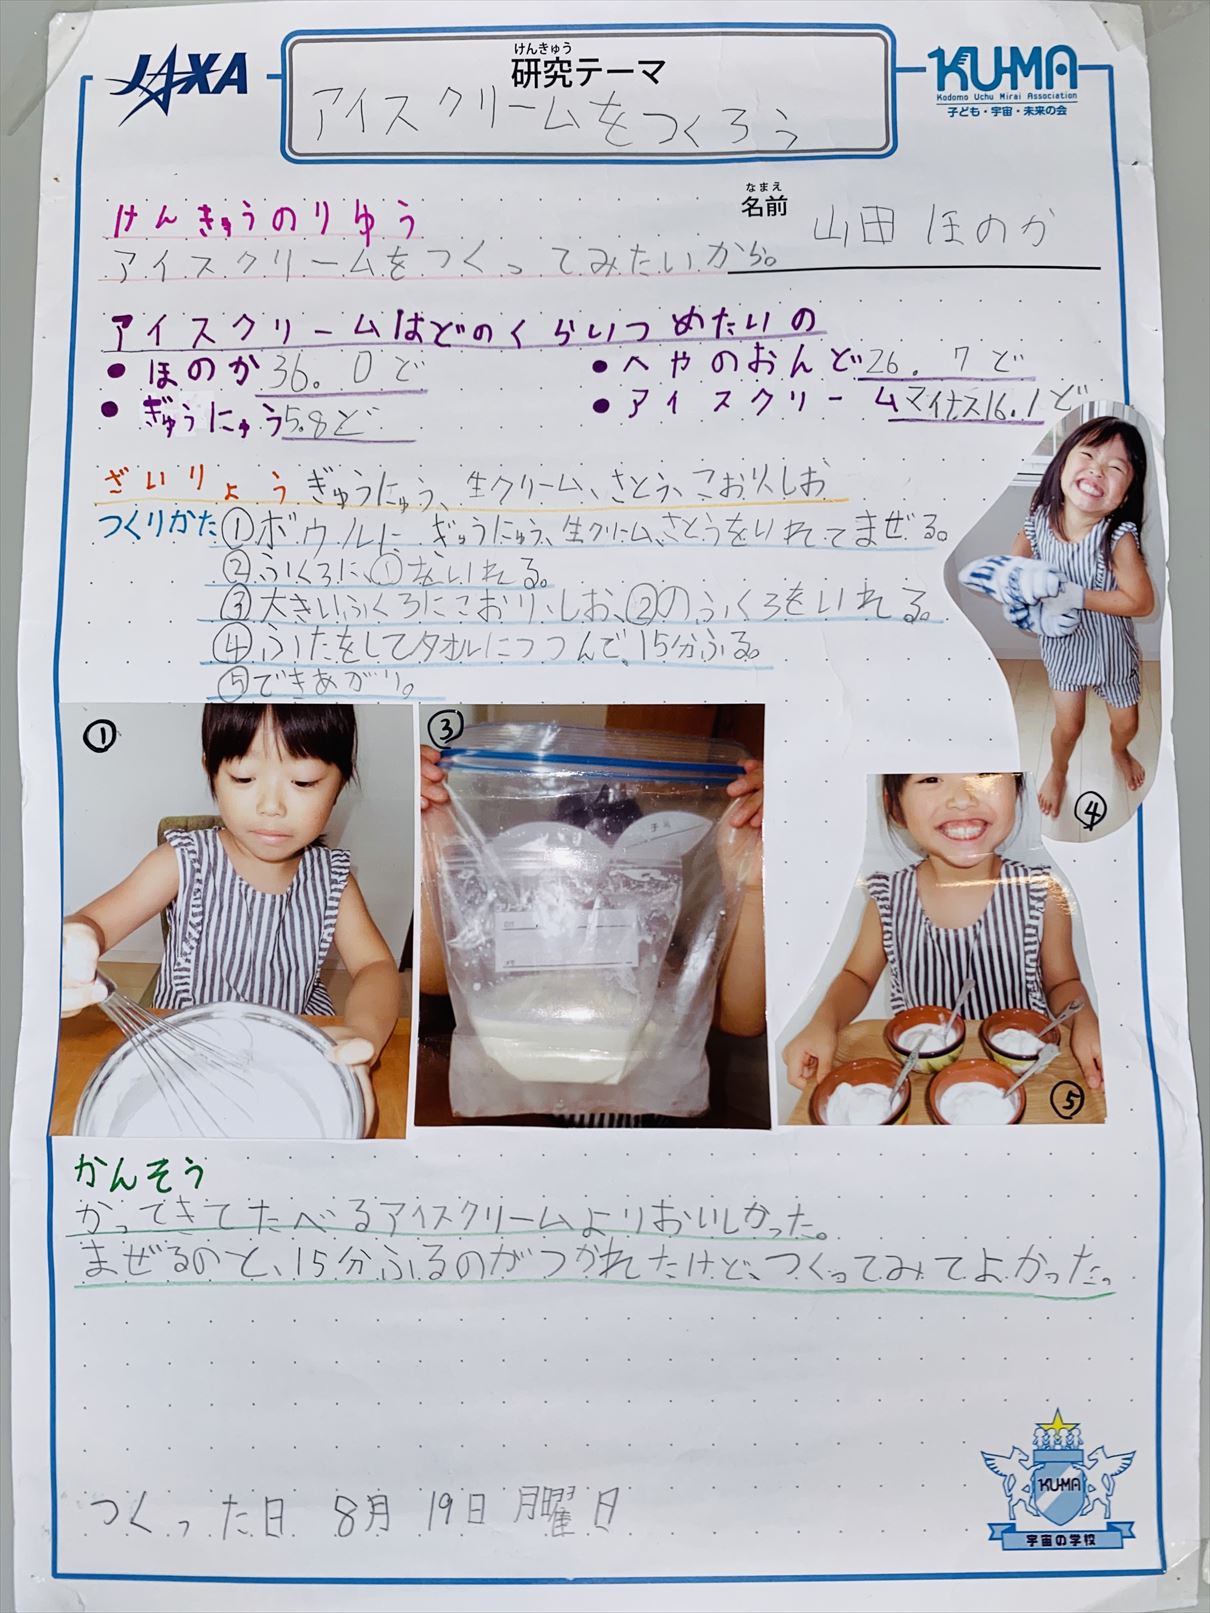 JAXA
けんきゅう
研究テーマ
アイスクリームをつくろう
KU-MA
Kodomo Uchu Mirai Association
子ども・宇宙・未来の会
けんきゅうのりゆう
なまえ
名前 山田 ほのか
アイスクリームをつくってみたいから。
アイスクリームはどのくらいつめたいの
●ほのか36.0ど
●へやのおんど26.7ど
●ぎゅうにゅう5.8ど
●アイスクリームマイナス16.1ど
ざいりょう ぎゅうにゅう、生クリーム、さとう、こおり、しお
つくりかた①ボウルに ぎゅうにゅう、生クリーム、さとうをいれてまぜる。
②ふくろに、①をいれる。
③大きいふくろにこおり、しお、②のふくろをいれる。
④ふたをしてタオルにつつんで、15分ふる。
⑤できあがり。
①
③
④
⑤
かんそう
かってきてたべるアイスクリームよりおいしかった。
まぜるのと、15分ふるのがつかれたけど、つくってみてよかった。
つくった日 8月 19日 月曜日
KU-MA
宇宙の学校